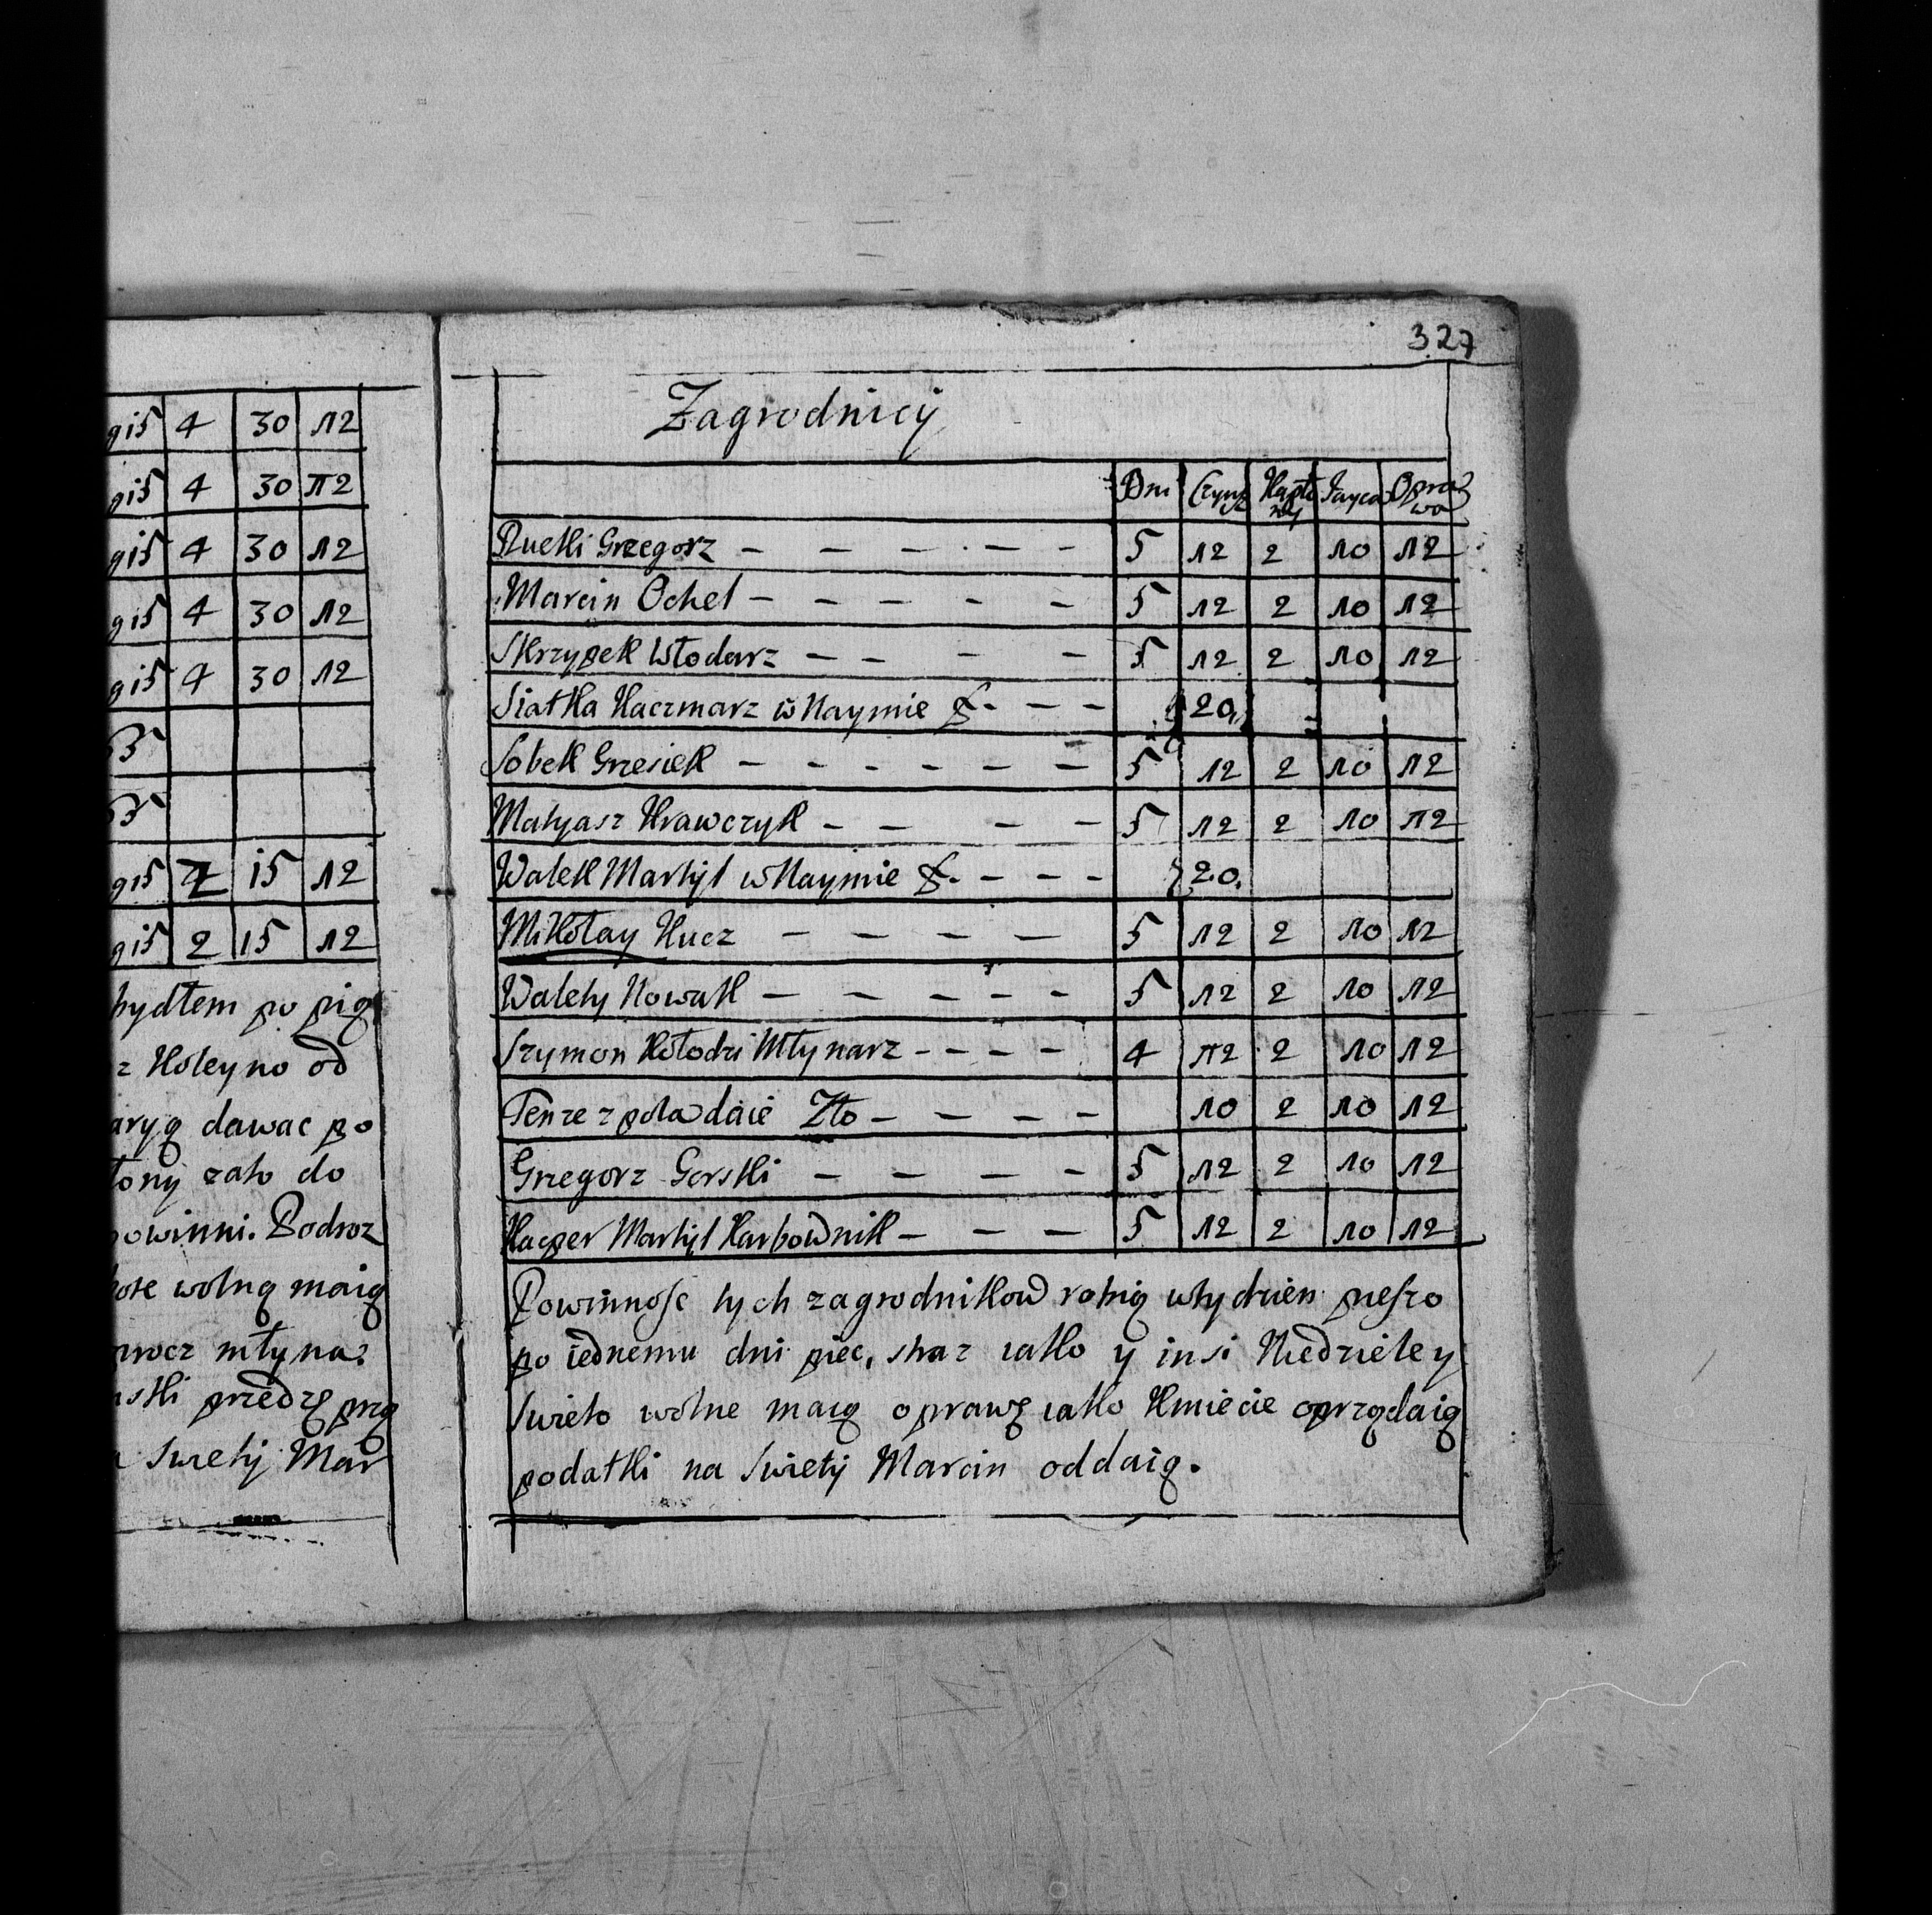 giß 4 30 12
giß 4 30 12
giß 4 30 12
giß 4 30 12
giß 4 30 12
giß 2 15 12
giß 2 15 12
bydłem po pią
z Koleyno od
aryą dawac po
tony zato do
powinni. Podroz
wolną maią
procz młyna
przedzę prą
Swiety Mar
327
Zagrodnicy
Dni Czynsz Kapłony Jayca Oprawa
Ruetki Grzegorz — — — — — 5 12 2 10 12
Marcin Ochel — — — — — 5 12 2 10 12
Skrzypek Włodarz — — — — 5 12 2 10 12
Siatka Kaczmarz w Naymie f. — — — 20
Sobek Grzesiek — — — — — — 5 12 2 10 12
Matyasz Krawczyk — — — — 5 12 2 10 12
Walek Martyl w Naymie f. — — — 20.
Mikołay Kucz — — — — 5 12 2 10 12
Walety Nowak — — — — — 5 12 2 10 12
Szymon Kołodzi Młynarz — — — — 4 12 2 10 12
Tenze z pola daie Zło — — — — 10 2 10 12
Grzegorz Gorski — — — — 5 12 2 10 12
Kacper Martyl Karbownik — — — 5 12 2 10 12
Powinnosc tych zagrodnikow robią wtydzien pieszo
po iednemu dni piec, straz iako y insi Niedzieley
Swieto wolne maią oprawę iako Kmiecie oprzędaią
podatki na Swiety Marcin oddaią.